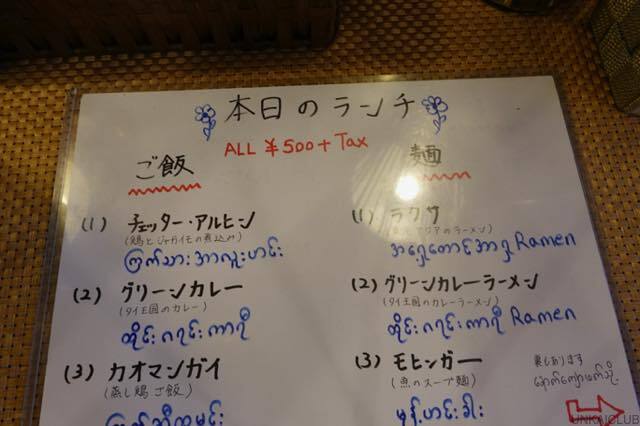 本日のランチ
ALL ¥500+Tax
ご飯
(1) チェッター・アルヒン
(鶏とジャガイモの煮込み)
ကြက်သား အာလူးဟင်း
(2) グリーンカレー
(タイ王国のカレー)
ထိုင်း ဂရင်းကာရီ
(3) カオマンガイ
(蒸し鶏ご飯)
麺
(1) ラクサ
အရှေ့တောင်အာရှ Ramen
(2) グリーンカレーラーメン
(タイ王国のカレーラーメン)
ထိုင်း ဂရင်းကာရီ Ramen
(3) モヒンガー
(魚のスープ麺)
မုန့်ဟင်းခါး
裏もあります
UNKAICLUB